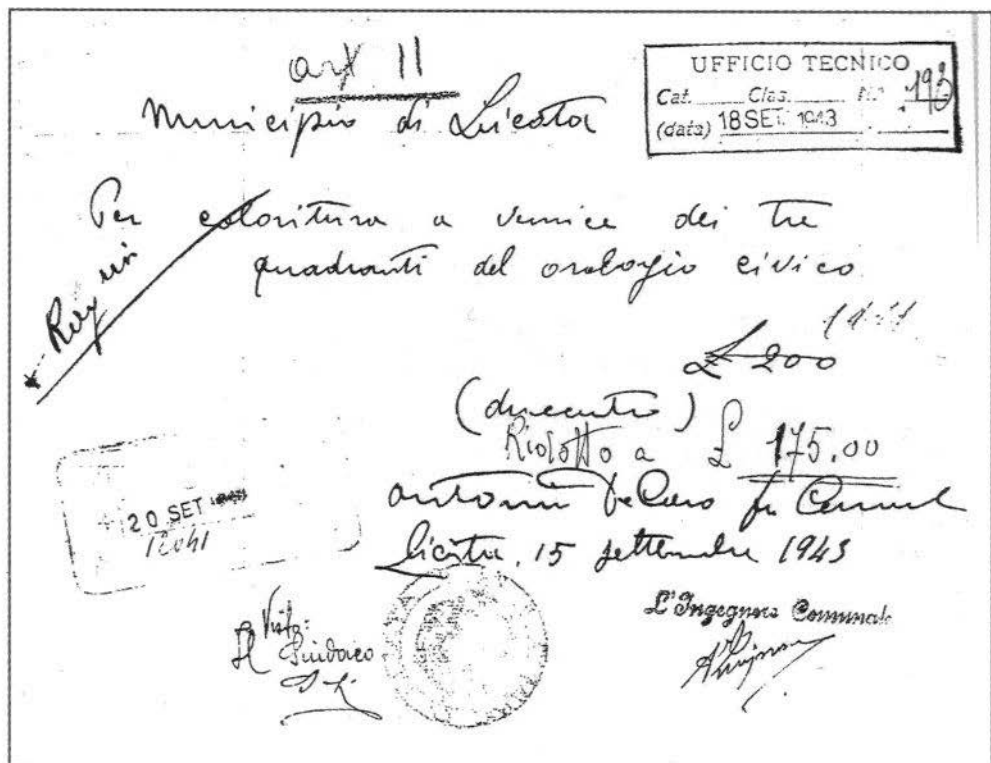 art 11
UFFICIO TECNICO
Cat. Clas. N.° 192
(data) 18 SET. 1943
Municipio di Licata
Per coloritura a vernice dei tre
quadranti del orologio civico
£ 200
(duecento)
Ridotto a £ 175.00
Antonio De Caro fu
Licata, 15 settembre 1943
20 SET
12041
Visto:
Il Sindaco
L'Ingegnere Comunale